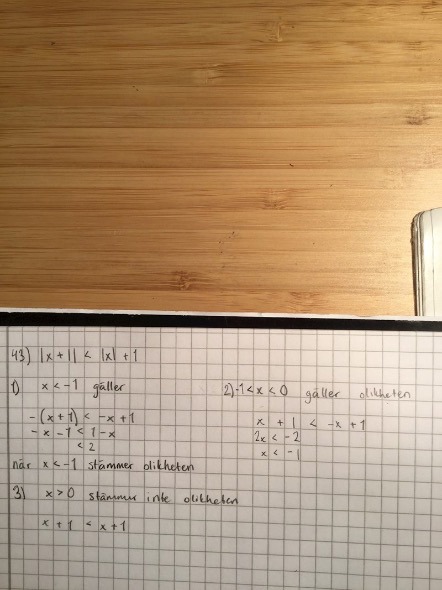 43) |x + 1| < |x| + 1
1) x < -1 gäller
-(x+1) < -x+1
-x -1 < 1 -x
< 2
när x < -1 stämmer olikheten
2) -1 < x < 0 gäller olikheten
x + 1 < -x + 1
2x < -2
x < -1
3) x > 0 stämmer inte olikheten
x + 1 < x + 1